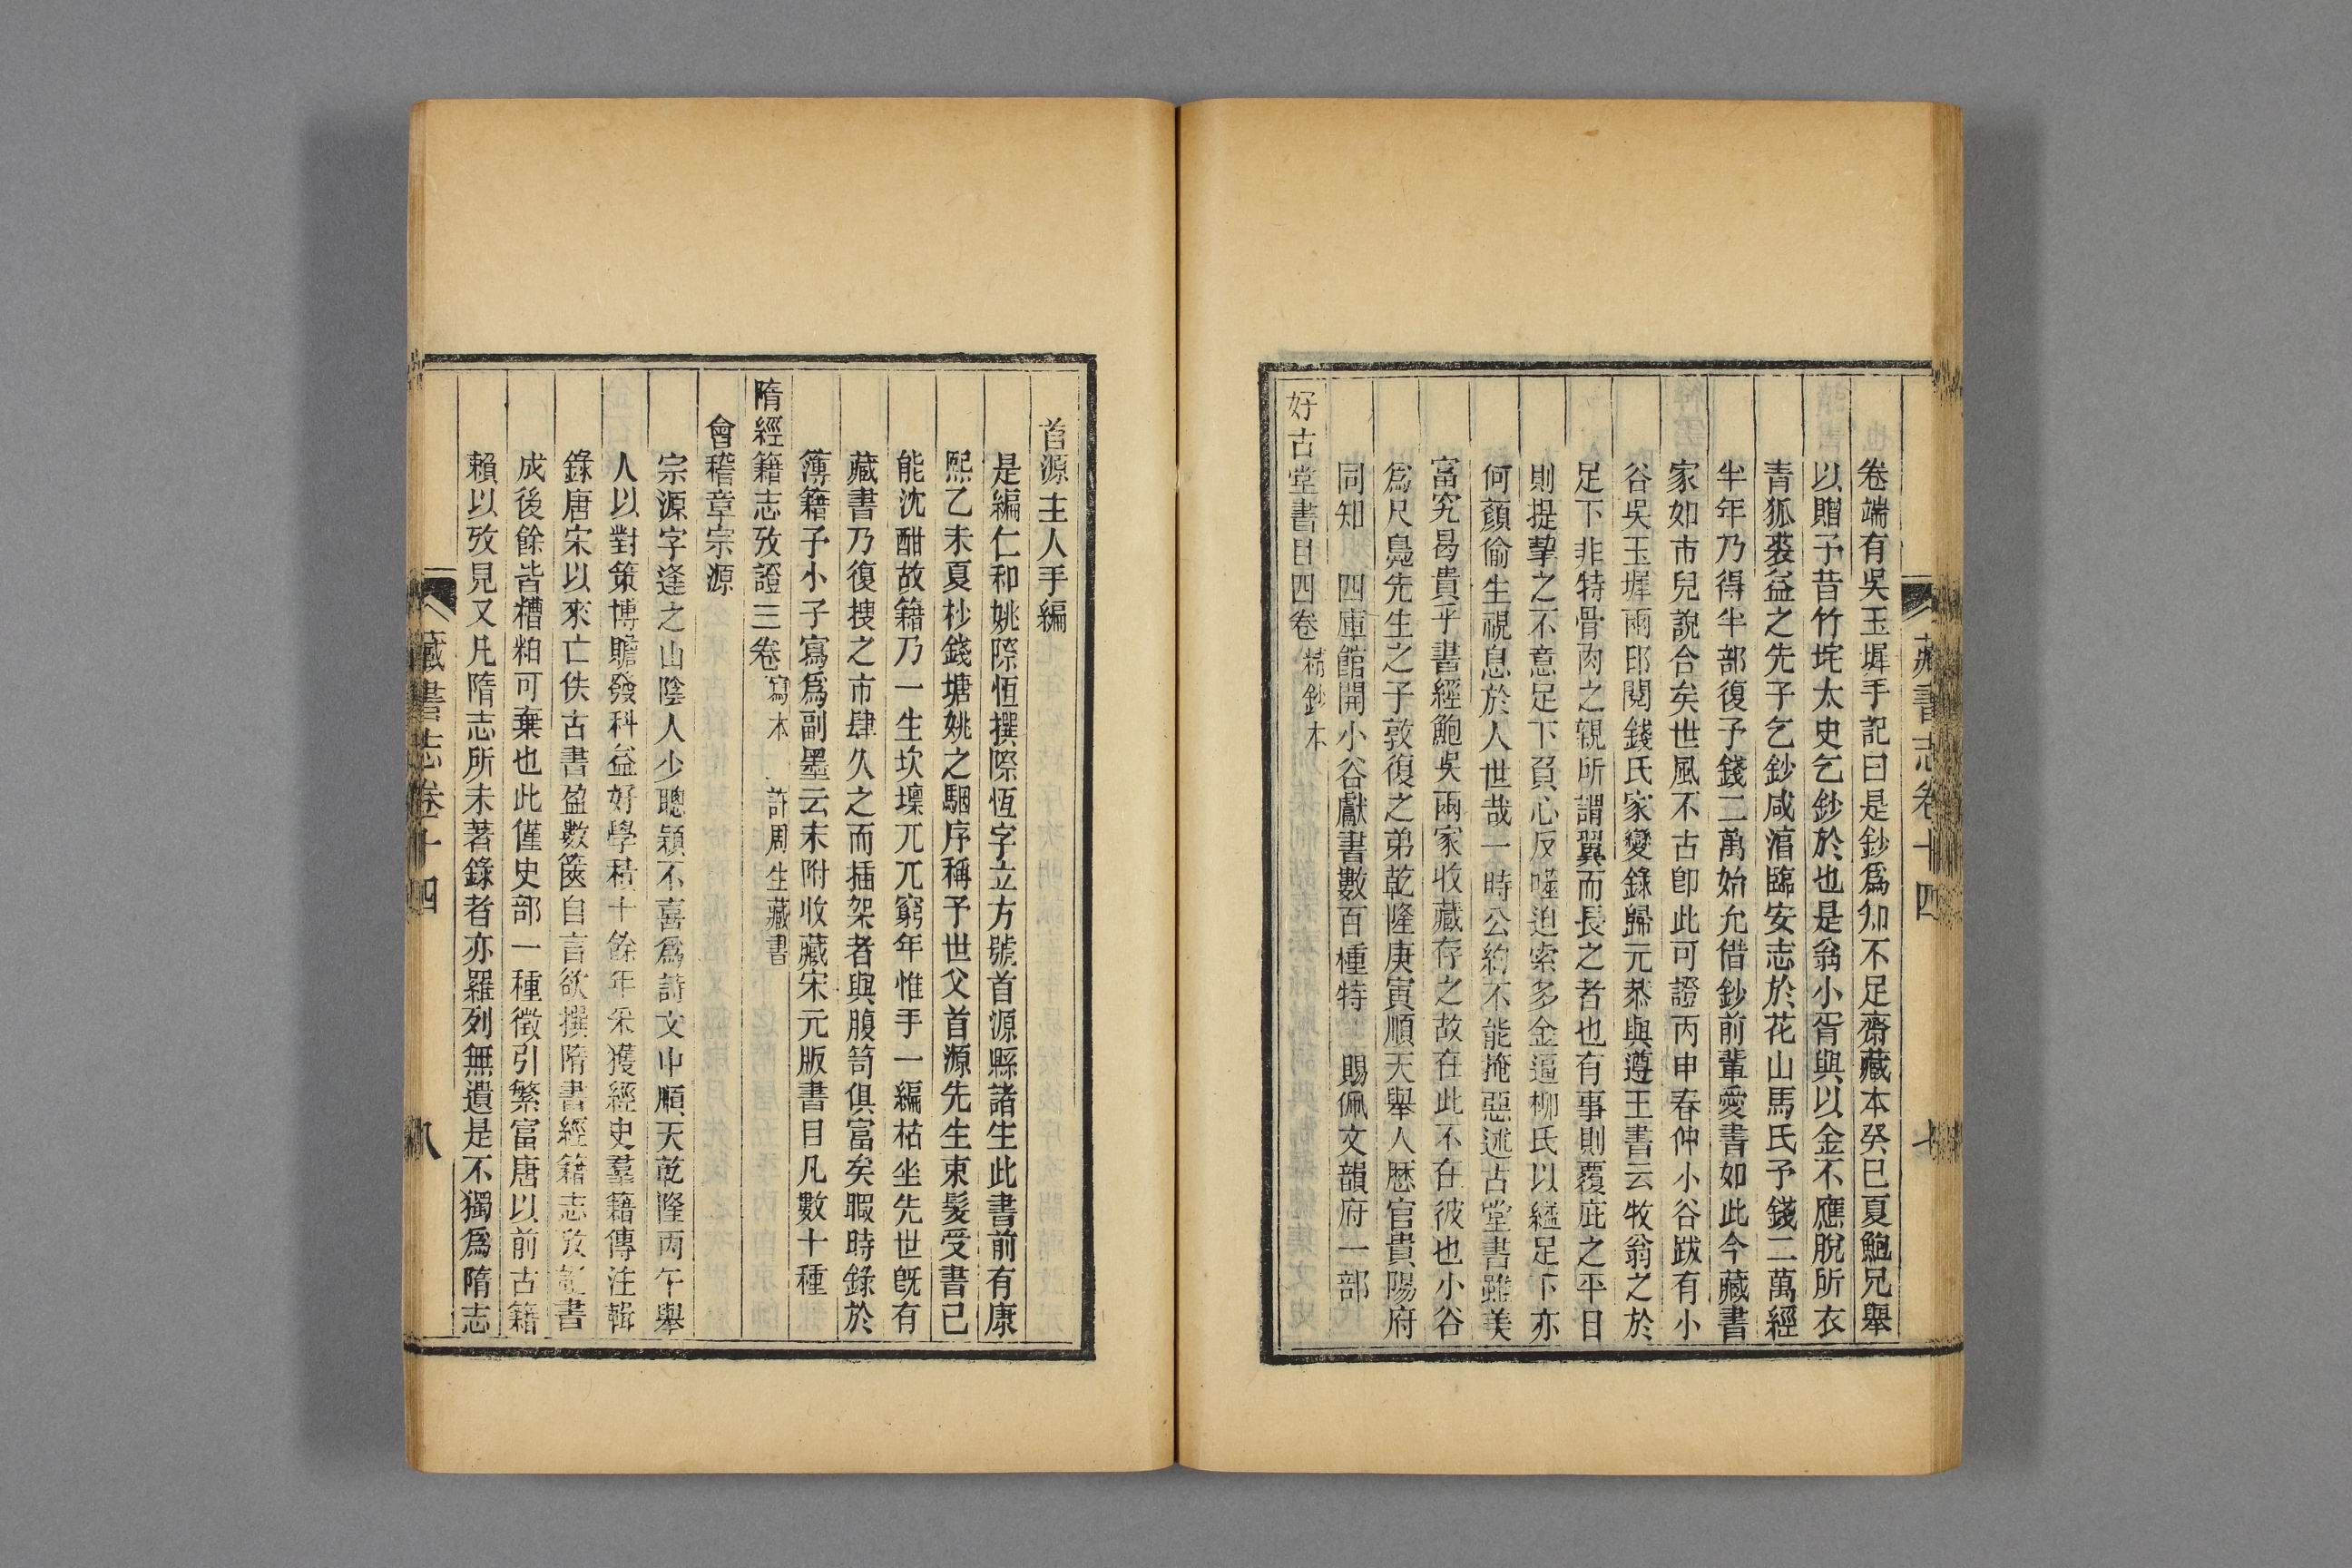 藏書志卷十四
七
卷端有吳玉墀手記曰是鈔爲知不足齋藏本癸巳夏鮑兄舉
以贈予昔竹垞太史乞鈔於也是翁小胥與以金不應脫所衣
青狐裘益之先子乞鈔咸淳臨安志於花山馬氏予錢二萬經
半年乃得半部復予錢二萬始允借鈔前輩愛書如此今藏書
家如市兒說合矣世風不古卽此可證丙申春仲小谷跋有小
谷吳玉墀兩印閱錢氏家變錄歸元恭與遵王書云牧翁之於
足下非特骨肉之親所謂翼而長之者也有事則覆庇之平日
則提挈之不意足下負心反噬迫索多金逼柳氏以縊足下亦
何顏偷生視息於人世哉一時公約不能掩惡述古堂書雖美
富究曷貴乎書經鮑吳兩家收藏存之故在此不在彼也小谷
爲尺鳧先生之子敦復之弟乾隆庚寅順天舉人歷官貴陽府
同知 四庫館開小谷獻書數百種特 賜佩文韻府一部
好古堂書目四卷 精鈔本
首源主人手編
是編仁和姚際恆撰際恆字立方號首源縣諸生此書前有康
熙乙未夏杪錢塘姚之駰序稱予世父首源先生束髮受書已
能沈酣故籍乃一生坎壈兀兀窮年惟手一編枯坐先世旣有
藏書乃復搜之市肆久之而插架者與腹笥俱富矣暇時錄於
簿籍子小子寫爲副墨云末附收藏宋元版書目凡數十種
隋經籍志攷證三卷 寫本 許周生藏書
會稽章宗源
宗源字逢之山陰人少聰穎不喜爲詩文中順天乾隆丙午舉
人以對策博贍發科益好學積十餘年采獲經史羣籍傳注輯
錄唐宋以來亡佚古書盈數篋自言欲撰隋書經籍志攷證書
成後餘皆糟粕可棄也此僅史部一種徵引繁富唐以前古籍
賴以攷見又凡隋志所未著錄者亦羅列無遺是不獨爲隋志
藏書志卷十四
八